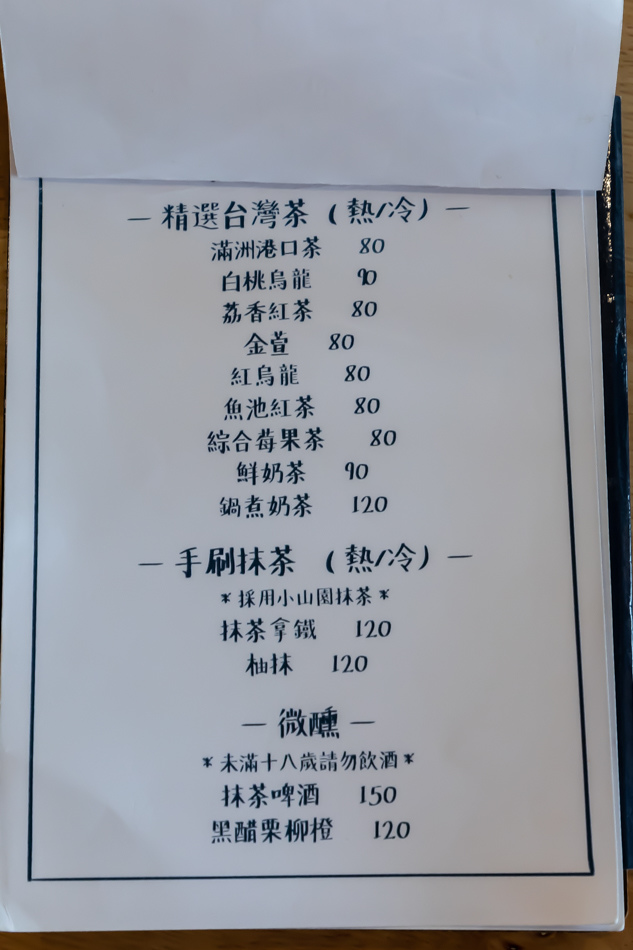 — 精選台灣茶 (熱/冷) —
滿洲港口茶 80
白桃烏龍 90
荔香紅茶 80
金萱 80
紅烏龍 80
魚池紅茶 80
綜合莓果茶 80
鮮奶茶 90
鍋煮奶茶 120
— 手刷抹茶 (熱/冷) —
*採用小山園抹茶*
抹茶拿鐵 120
柚抹 120
— 微醺 —
*未滿十八歲請勿飲酒*
抹茶啤酒 150
黑醋栗柳橙 120